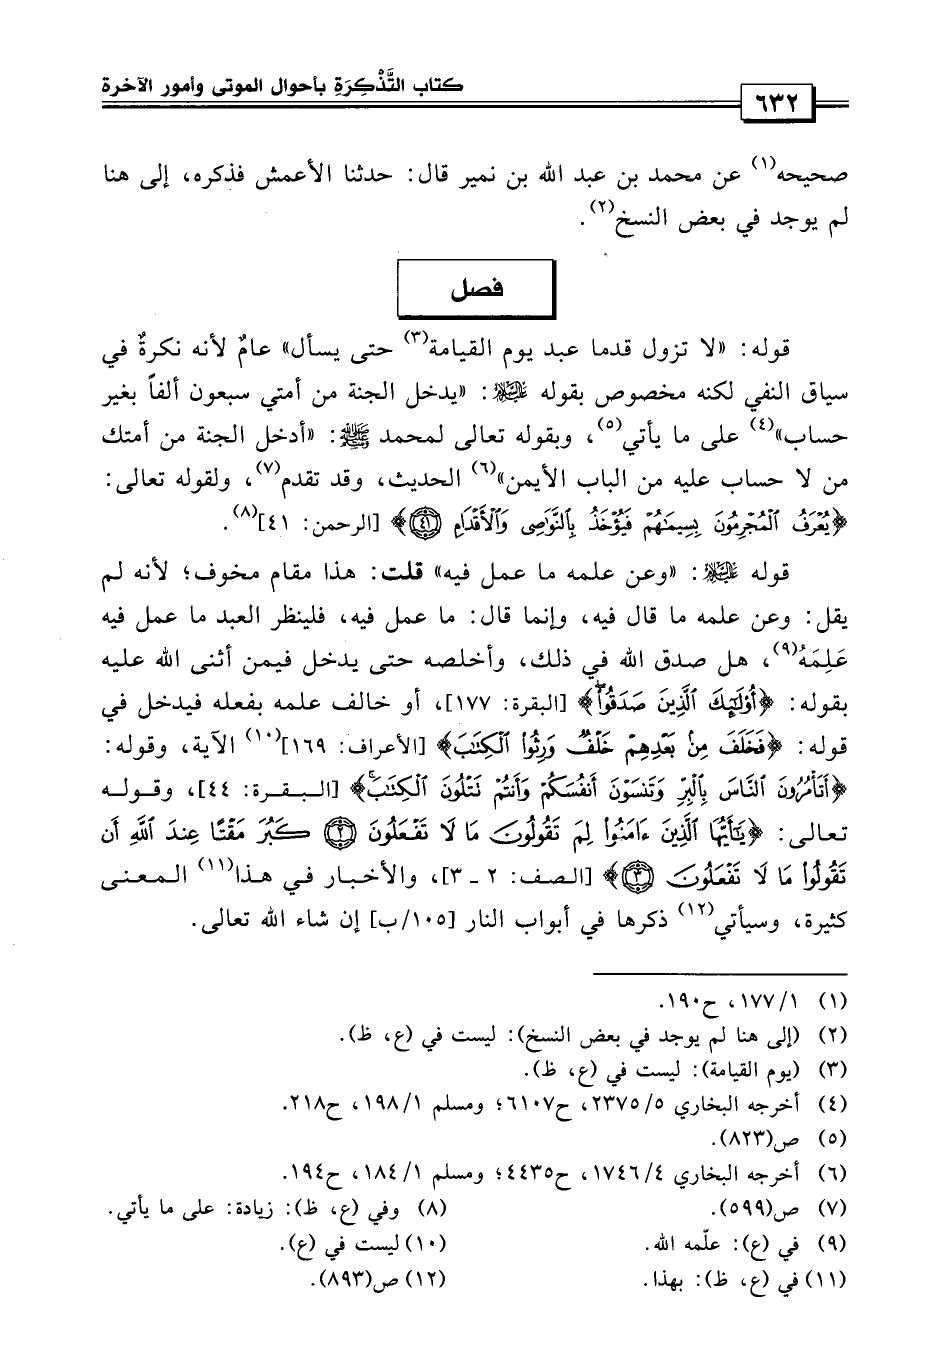 كتاب التَّذْكِرَةِ بأحوال الموتى وأمور الآخرة
٦٣٢
صحيحه(١) عن محمد بن عبد الله بن نمير قال: حدثنا الأعمش فذكره، إلى هنا
لم يوجد في بعض النسخ(٢).
فصل
قوله: «لا تزول قدما عبد يوم القيامة(٣) حتى يسأل» عامٌ لأنه نكرةٌ في
سياق النفي لكنه مخصوص بقوله ﷺ: «يدخل الجنة من أمتي سبعون ألفاً بغير
حساب»(٤) على ما يأتي(٥)، وبقوله تعالى لمحمد ﷺ: «أدخل الجنة من أمتك
من لا حساب عليه من الباب الأيمن»(٦) الحديث، وقد تقدم(٧)، ولقوله تعالى:
﴿يُعْرَفُ الْمُجْرِمُونَ بِسِيمَاهُمْ فَيُؤْخَذُ بِالنَّوَاصِي وَالْأَقْدَامِ ﴿٤١﴾﴾ [الرحمن: ٤١](٨).
قوله ﷺ: «وعن علمه ما عمل فيه» قلت: هذا مقام مخوف؛ لأنه لم
يقل: وعن علمه ما قال فيه، وإنما قال: ما عمل فيه، فلينظر العبد ما عمل فيه
عَلِمَهُ(٩)، هل صدق الله في ذلك، وأخلصه حتى يدخل فيمن أثنى الله عليه
بقوله: ﴿أُوْلَٰٓئِكَ ٱلَّذِينَ صَدَقُواْۖ﴾ [البقرة: ١٧٧]، أو خالف علمه بفعله فيدخل في
قوله: ﴿فَخَلَفَ مِنۢ بَعْدِهِمْ خَلْفٌ وَرِثُواْ ٱلْكِتَٰبَ﴾ [الأعراف: ١٦٩](١٠) الآية، وقوله:
﴿أَتَأْمُرُونَ ٱلنَّاسَ بِٱلْبِرِّ وَتَنسَوْنَ أَنفُسَكُمْ وَأَنتُمْ تَتْلُونَ ٱلْكِتَٰبَۚ﴾ [البقرة: ٤٤]، وقوله
تعالى: ﴿يَٰٓأَيُّهَا ٱلَّذِينَ ءَامَنُواْ لِمَ تَقُولُونَ مَا لَا تَفْعَلُونَ ﴿٢﴾ كَبُرَ مَقْتًا عِندَ ٱللَّهِ أَن
تَقُولُواْ مَا لَا تَفْعَلُونَ ﴿٣﴾﴾ [الصف: ٢ ـ ٣]، والأخبار في هذا(١١) المعنى
كثيرة، وسيأتي(١٢) ذكرها في أبواب النار [١٠٥/ب] إن شاء الله تعالى.
(١) ١/ ١٧٧، ح١٩٠.
(٢) (إلى هنا لم يوجد في بعض النسخ): ليست في (ع، ظ).
(٣) (يوم القيامة): ليست في (ع، ظ).
(٤) أخرجه البخاري ٥/ ٢٣٧٥، ح٦١٠٧؛ ومسلم ١/ ١٩٨، ح٢١٨.
(٥) ص(٨٢٣).
(٦) أخرجه البخاري ٤/ ١٧٤٦، ح٤٤٣٥؛ ومسلم ١/ ١٨٤، ح١٩٤.
(٧) ص(٥٩٩). (٨) وفي (ع، ظ): زيادة: على ما يأتي.
(٩) في (ع): علّمه الله. (١٠) ليست في (ع).
(١١) في (ع، ظ): بهذا. (١٢) ص(٨٩٣).